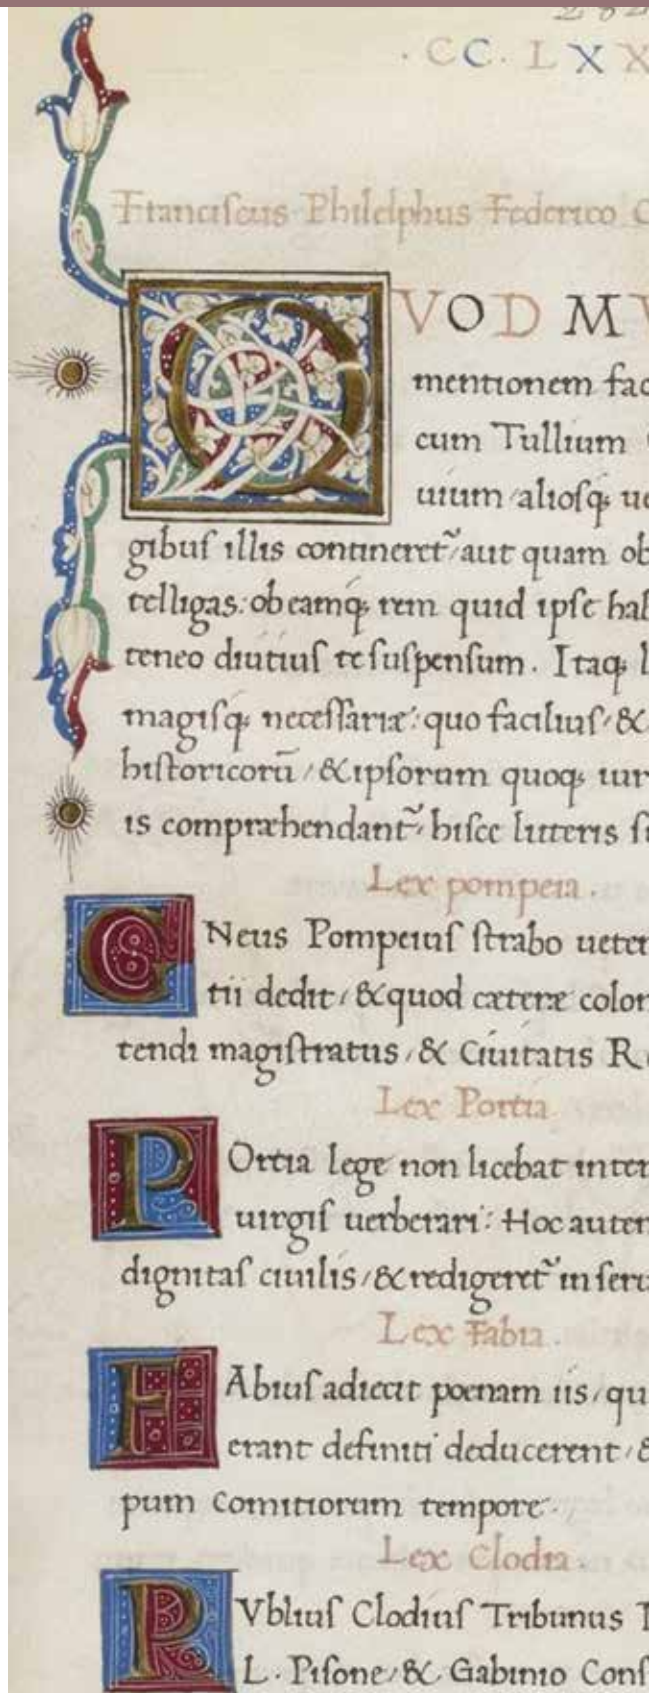 . CC. L X X
Franciscus Philelphus Federico
QVOD M
mentionem fac
cum Tullium
uium / aliosq; ue
gibus illis contineret᷑ / aut quam ob
telligas: ob eamq; rem quid ipse hab
teneo diutius te suspensum. Itaq; l
magisq; necessariæ: quo facilius / &
historicorū / & ipsorum quoq; iur
is compræhendant᷑ / hisce litteris su
Lex pompeia.
CNeus Pompeius strabo ueter
tii dedit / & quod cæteræ colon
tendi magistratus / & Ciuitatis R
Lex Portia
POrtia lege non licebat inter
uirgis uerberari: Hoc autem
dignitas ciuilis / & redigeret᷑ in seru
Lex Fabia.
FAbius adiecit poenam iis / qu
erant definiti deducerent / &
pum comitiorum tempore.
Lex Clodia.
PVblius Clodius Tribunus
L. Pisone / & Gabinio Cons